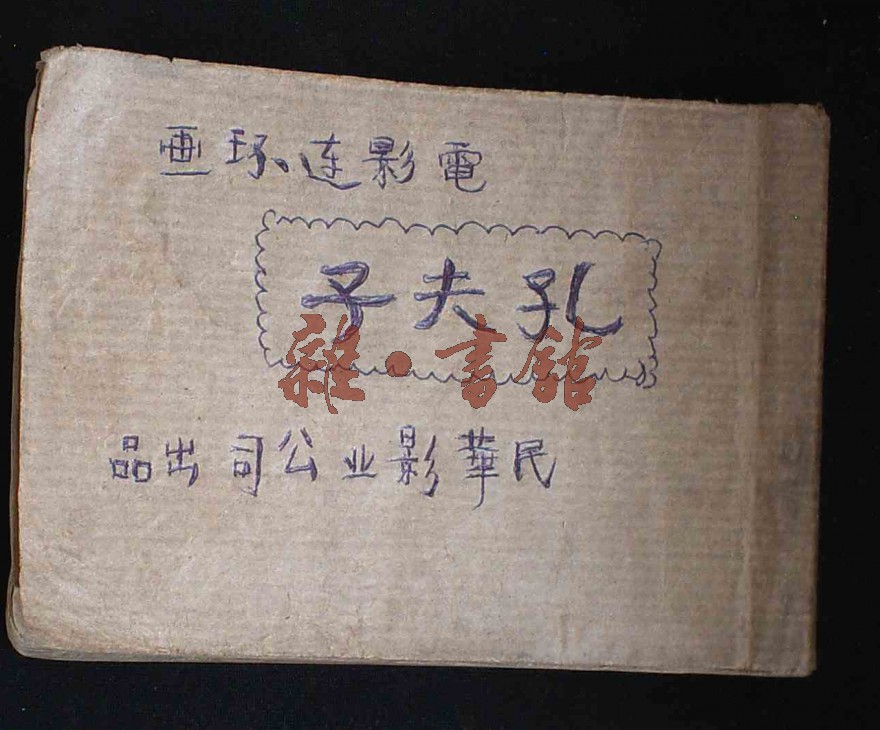 電影连环画
孔夫子
雜·書館
民華影业公司出品